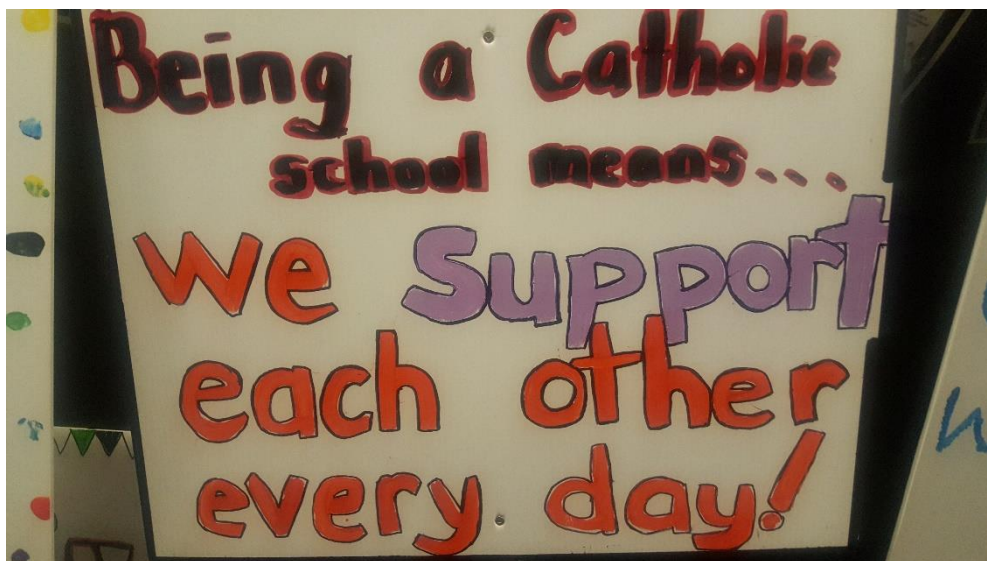 Being a Catholic
school means...
we support
each other
every day!